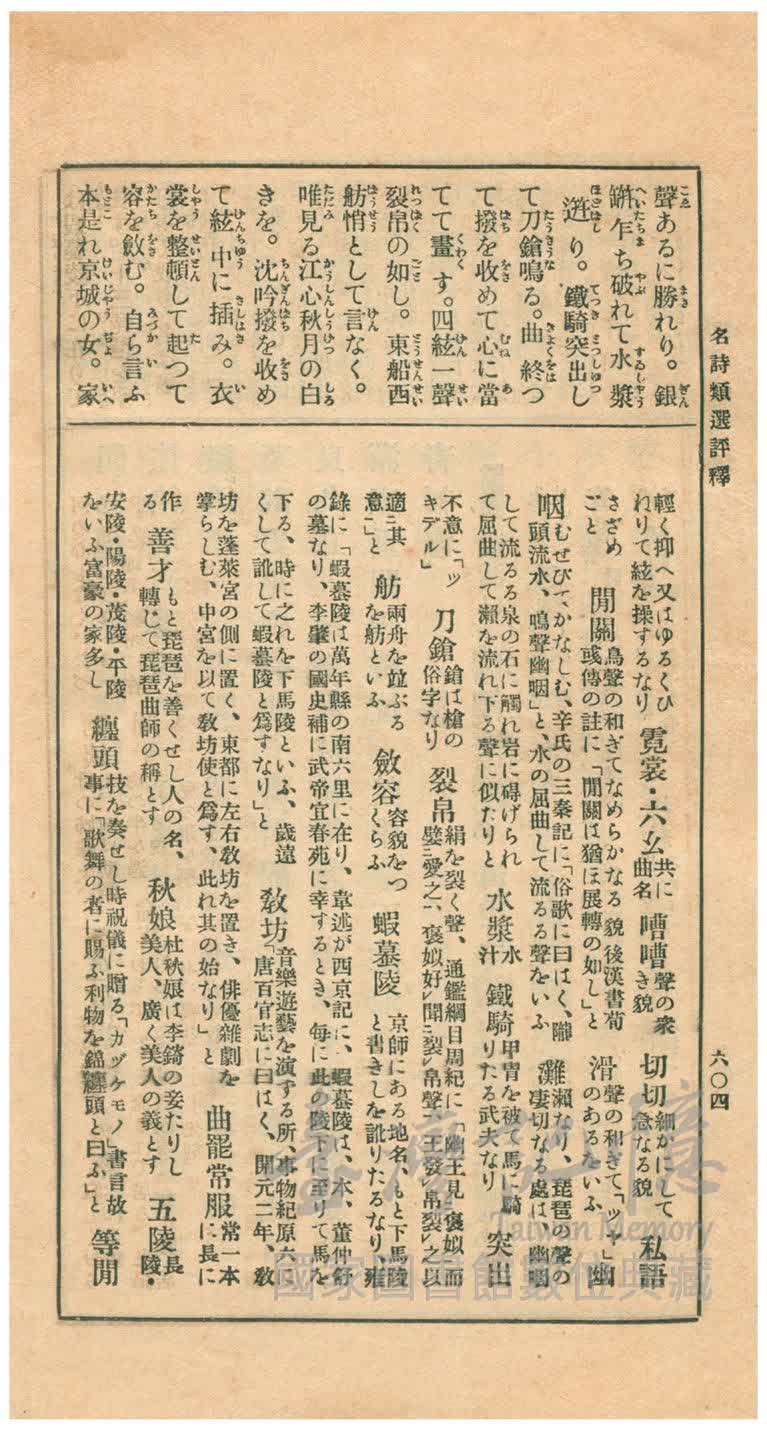 名詩類選評釋
六〇四
聲あるに勝れり。銀
缾乍ち破れて水漿
迸り。鐵騎突出し
て刀鎗鳴る。曲終つ
て撥を收めて心に當
てて畫す。四絃一聲
裂帛の如し。東船西
舫悄として言なく。
唯見る江心秋月の白
きを。沈吟撥を收め
て絃中に插み。衣
裳を整頓して起つて
容を斂む。自ら言ふ
本是れ京城の女。家
輕く抑へ又はゆるくひねりて絃を操するなり 霓裳・六幺 共に曲名 嘈嘈 聲の衆き貌 切切 細かにして急なる貌 私語
さざめごと 閒關 鳥聲の和ぎてなめらかなる貌後漢書荀彧傳の註に「閒關は猶ほ展轉の如し」と 滑 聲の和ぎて「ツヤ」のあるをいふ 幽
咽 むせびてかなしむ、辛氏の三秦記に「俗歌に曰はく、隴頭流水、鳴聲幽咽」と、水の屈曲して流るる聲をいふ 灘 瀨なり、琵琶の聲の凄切なる處は、幽咽
して流るる泉の石に觸れ岩に碍げられて屈曲して瀨を流れ下る聲に似たりと 水漿 水汁 鐵騎 甲冑を被て馬に騎りたる武夫なり 突出
不意に「ツキデル」 刀鎗 鎗は槍の俗字なり 裂帛 絹を裂く聲、通鑑綱目周紀に「幽王見褒姒而嬖ニ愛之一、褒姒好レ聞ニ裂レ帛聲一、王發レ帛裂レ之以
適ニ其意一」と 舫 兩舟を竝ぶるを舫といふ 斂容 容貌をつくらふ 蝦蟇陵 京師にある地名、もと下馬陵と書きしを訛りたるなり、雍
錄に「蝦蟇陵は萬年縣の南六里に在り、韋述が西京記に、蝦蟇陵は、本、董仲舒の墓なり、李肇の國史補に武帝宜春苑に幸するとき、每に此の陵下に至りて馬を
下る、時に之れを下馬陵といふ、歲遠くして訛して蝦蟇陵と爲すなり」と 敎坊 音樂遊藝を演ずる所、事物紀原六に「唐百官志に曰はく、開元二年、敎
坊を蓬萊宮の側に置く、東都に左右敎坊を置き、俳優雜劇を掌らしむ、中宮を以て敎坊使と爲す、此れ其の始なり」と 曲罷常服 常一本に長に
作る 善才 もと琵琶を善くせし人の名、轉じて琵琶曲師の稱とす 秋娘 杜秋娘は李錡の妾たりし美人、廣く美人の義とす 五陵 長陵・
安陵・陽陵・茂陵・平陵をいふ富豪の家多し 纏頭 技を奏せし時祝儀に贈る「カヅケモノ」書言故事に「歌舞の者に賜ふ利物を錦纏頭と曰ふ」と 等閒
臺灣記憶
Taiwan Memory
國家圖書館數位典藏